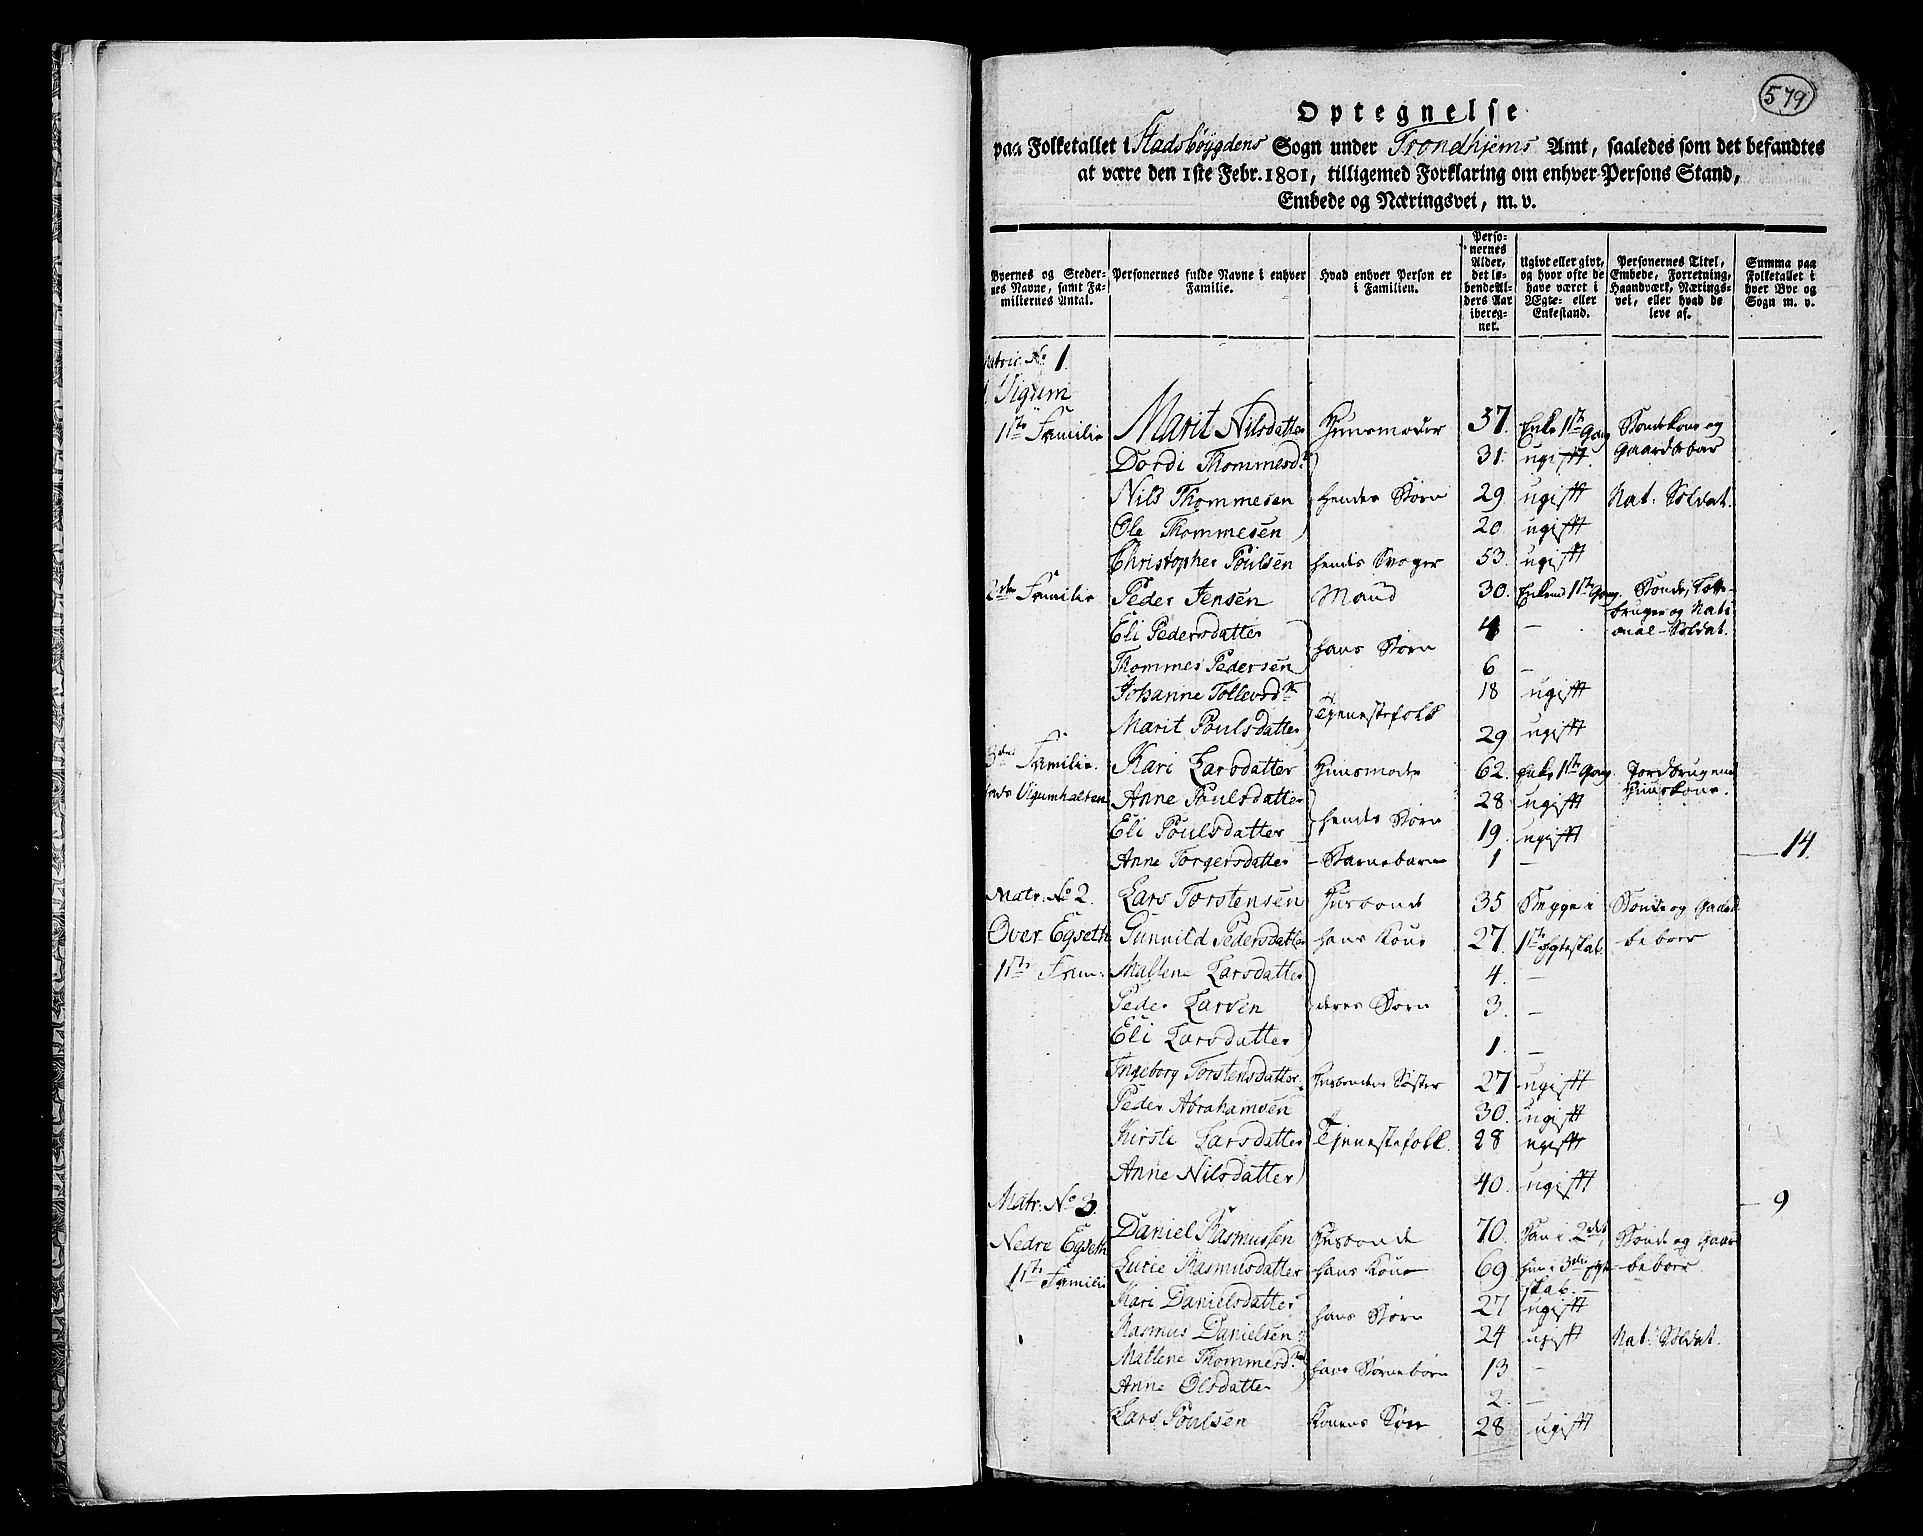 579
Optegnelse
paa Folketallet i Stadsböygdens Sogn under Trondhjems Amt, saaledes som det befandtes
at være den 1ste Febr. 1801, tilligemed Forklaring om enhver Persons Stand,
Embede og Næringsvei, m. v.
Byernes og Stedernes Navne, samt Familiernes Antal. Personernes fulde Navne i enhver Familie. Hvad enhver Person er i Familien. Personernes Alder, det løbende Alders Aar iberegnet. Ugivt eller givt, og hvor ofte de have været i Ægte- eller Enkestand. Personernes Titel, Embede, Forretning, Haandværk, Næringsvei, eller hvad de leve af. Summa paa Folketallet i hver Bye og Sogn m. v.
Matric. No 1.
Vigum
1ste Familie Marit Nilsdatter Huusmoder 37. Enke 1ste Gang Bondekone og
Dordi Thommesdr 31. ugift. Gaardebeboer
Nils Thommesen hendes Børn 29 ugift Nat: Soldat.
Ole Thommesen 20 ugift
Christopher Poulsen hendes Svoger 53. ugift
2den Familie Peder Jensen Mand 30. Enkem 1ste Gang. Bonde,
bruger og Nati
Eli Pedersdatter 4 — onal-Soldat.
hans Børn
Thommes Pedersen 6 —
Johanne Tollevsdr 18 ugift
Tjenestefolk
Marit Poulsdatter 29 ugift
3die Familie. Kari Larsdatter Huusmoder 62. Enke 1ste Gang. Jordbrugende
Vigumhalten Anne Poulsdatter 28 ugift Huuskone.
hendes Børn
Eli Poulsdatter 19. ugift
Anne Torgersdatter – Barnebarn 1 — 14.
Matr. No 2. Lars Torstensen Husbonde 35 Begge i Bonde og Gaard
Over Egseth Gunnild Pedersdatter hans Kone 27. 1ste Egteskab. beboer
1ste Fam: Mallene Larsdatter 4. —
Peder Larsen deres Børn 3. —
Eli Larsdatter 1. —
Ingeborg Torstensdatter Husbondens Søster 27 ugift
Peder Abrahamsen 30. ugift
Kirsti Larsdatter Tjenestefolk. 28 ugift
Anne Nilsdatter 40. ugift
Matr. No 3. 9
Daniel Rasmussen Husbonde 70. Han i 2det, Bonde og Gaar
Nedre Egseth
Lucie Rasmusdatter hans Kone 69 hun i 3die Egte- beboer
1ste Familie skab. —
Kari Danielsdatter 27 ugift
hans Børn
Rasmus Danielsen 24 ugift Nat: Soldat.
Mallene Thommesdr 13 —
hans Børnebørn
Anne Olsdatter 2. —
Lars Poulsen Konens Søn 28 ugift